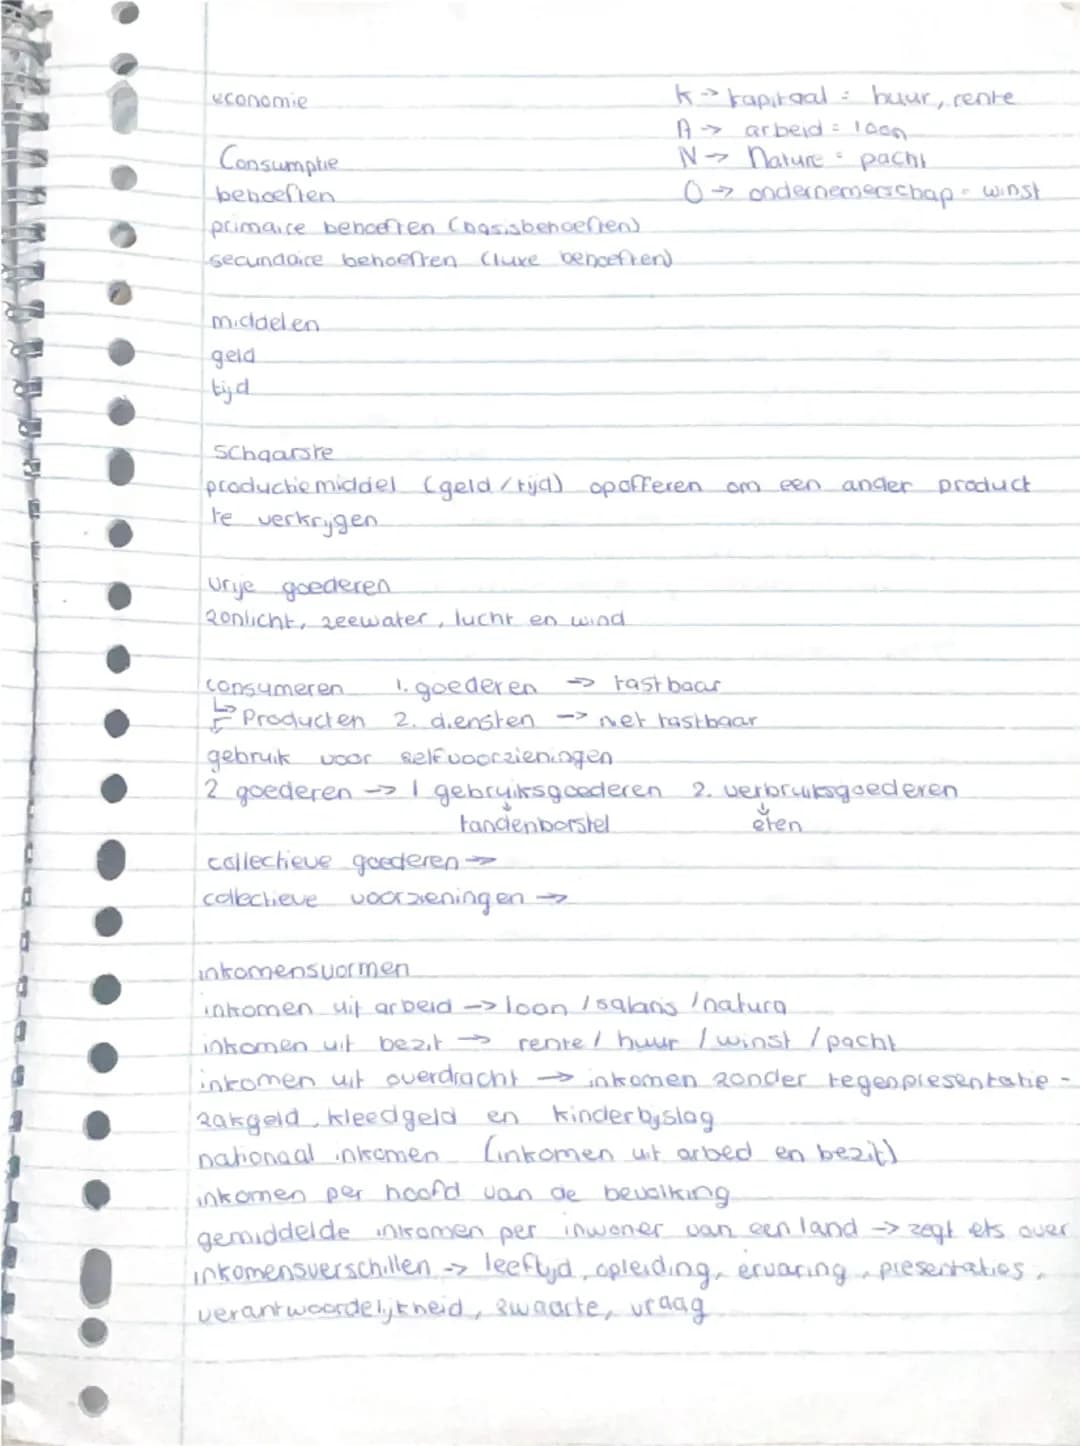 economie
K -> kapitaal = huur, rente
A -> arbeid = loon
N -> Nature = pacht
O -> ondernemerschap = winst
Consumptie
behoeften
primaire behoeften (basisbehoeften)
secundaire behoeften (luxe behoeften)
middelen
geld
tijd
schaarste
productiemiddel (geld/tijd) opofferen om een ander product
te verkrijgen
vrije goederen
zonlicht, zeewater, lucht en wind
consumeren 1. goederen -> tastbaar
↳ Producten 2. diensten -> niet tastbaar
gebruik voor selfvoorzieningen
2 goederen -> 1 gebruiksgoederen 2. verbruiksgoederen
tandenborstel eten
collectieve goederen ->
collectieve voorzieningen ->
inkomensvormen
inkomen uit arbeid -> loon / salaris / natura
inkomen uit bezit -> rente / huur / winst / pacht
inkomen uit overdracht -> inkomen zonder tegenpresentatie -
zakgeld, kleedgeld en kinderbyslag
nationaal inkomen (inkomen uit arbed en bezit)
inkomen per hoofd van de bevolking
gemiddelde inkomen per inwoner van een land -> zegt iets over
inkomensverschillen -> leeftijd, opleiding, ervaring, presentaties,
verantwoordelijkheid, zwaarte, vraag